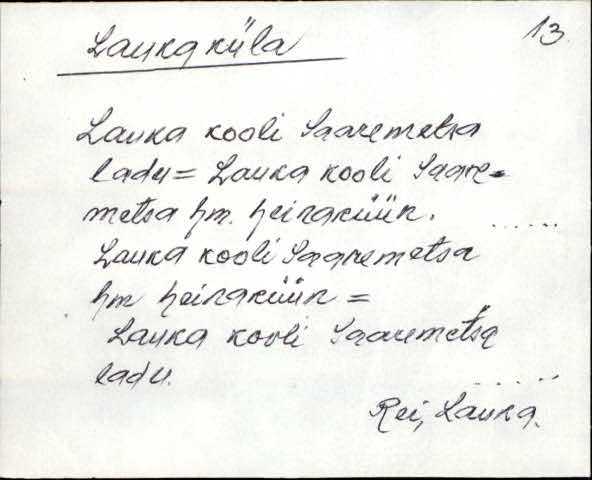 Lauka küla
13.
Lauka kooli Saaremetsa
ladu = Lauka kooli Saare-
metsa hm. heinaküün. ......
Lauka kooli Saaremetsa
hm heinaküün =
Lauka kooli Saaremetsa
ladu. ......
Rei, Lauka.